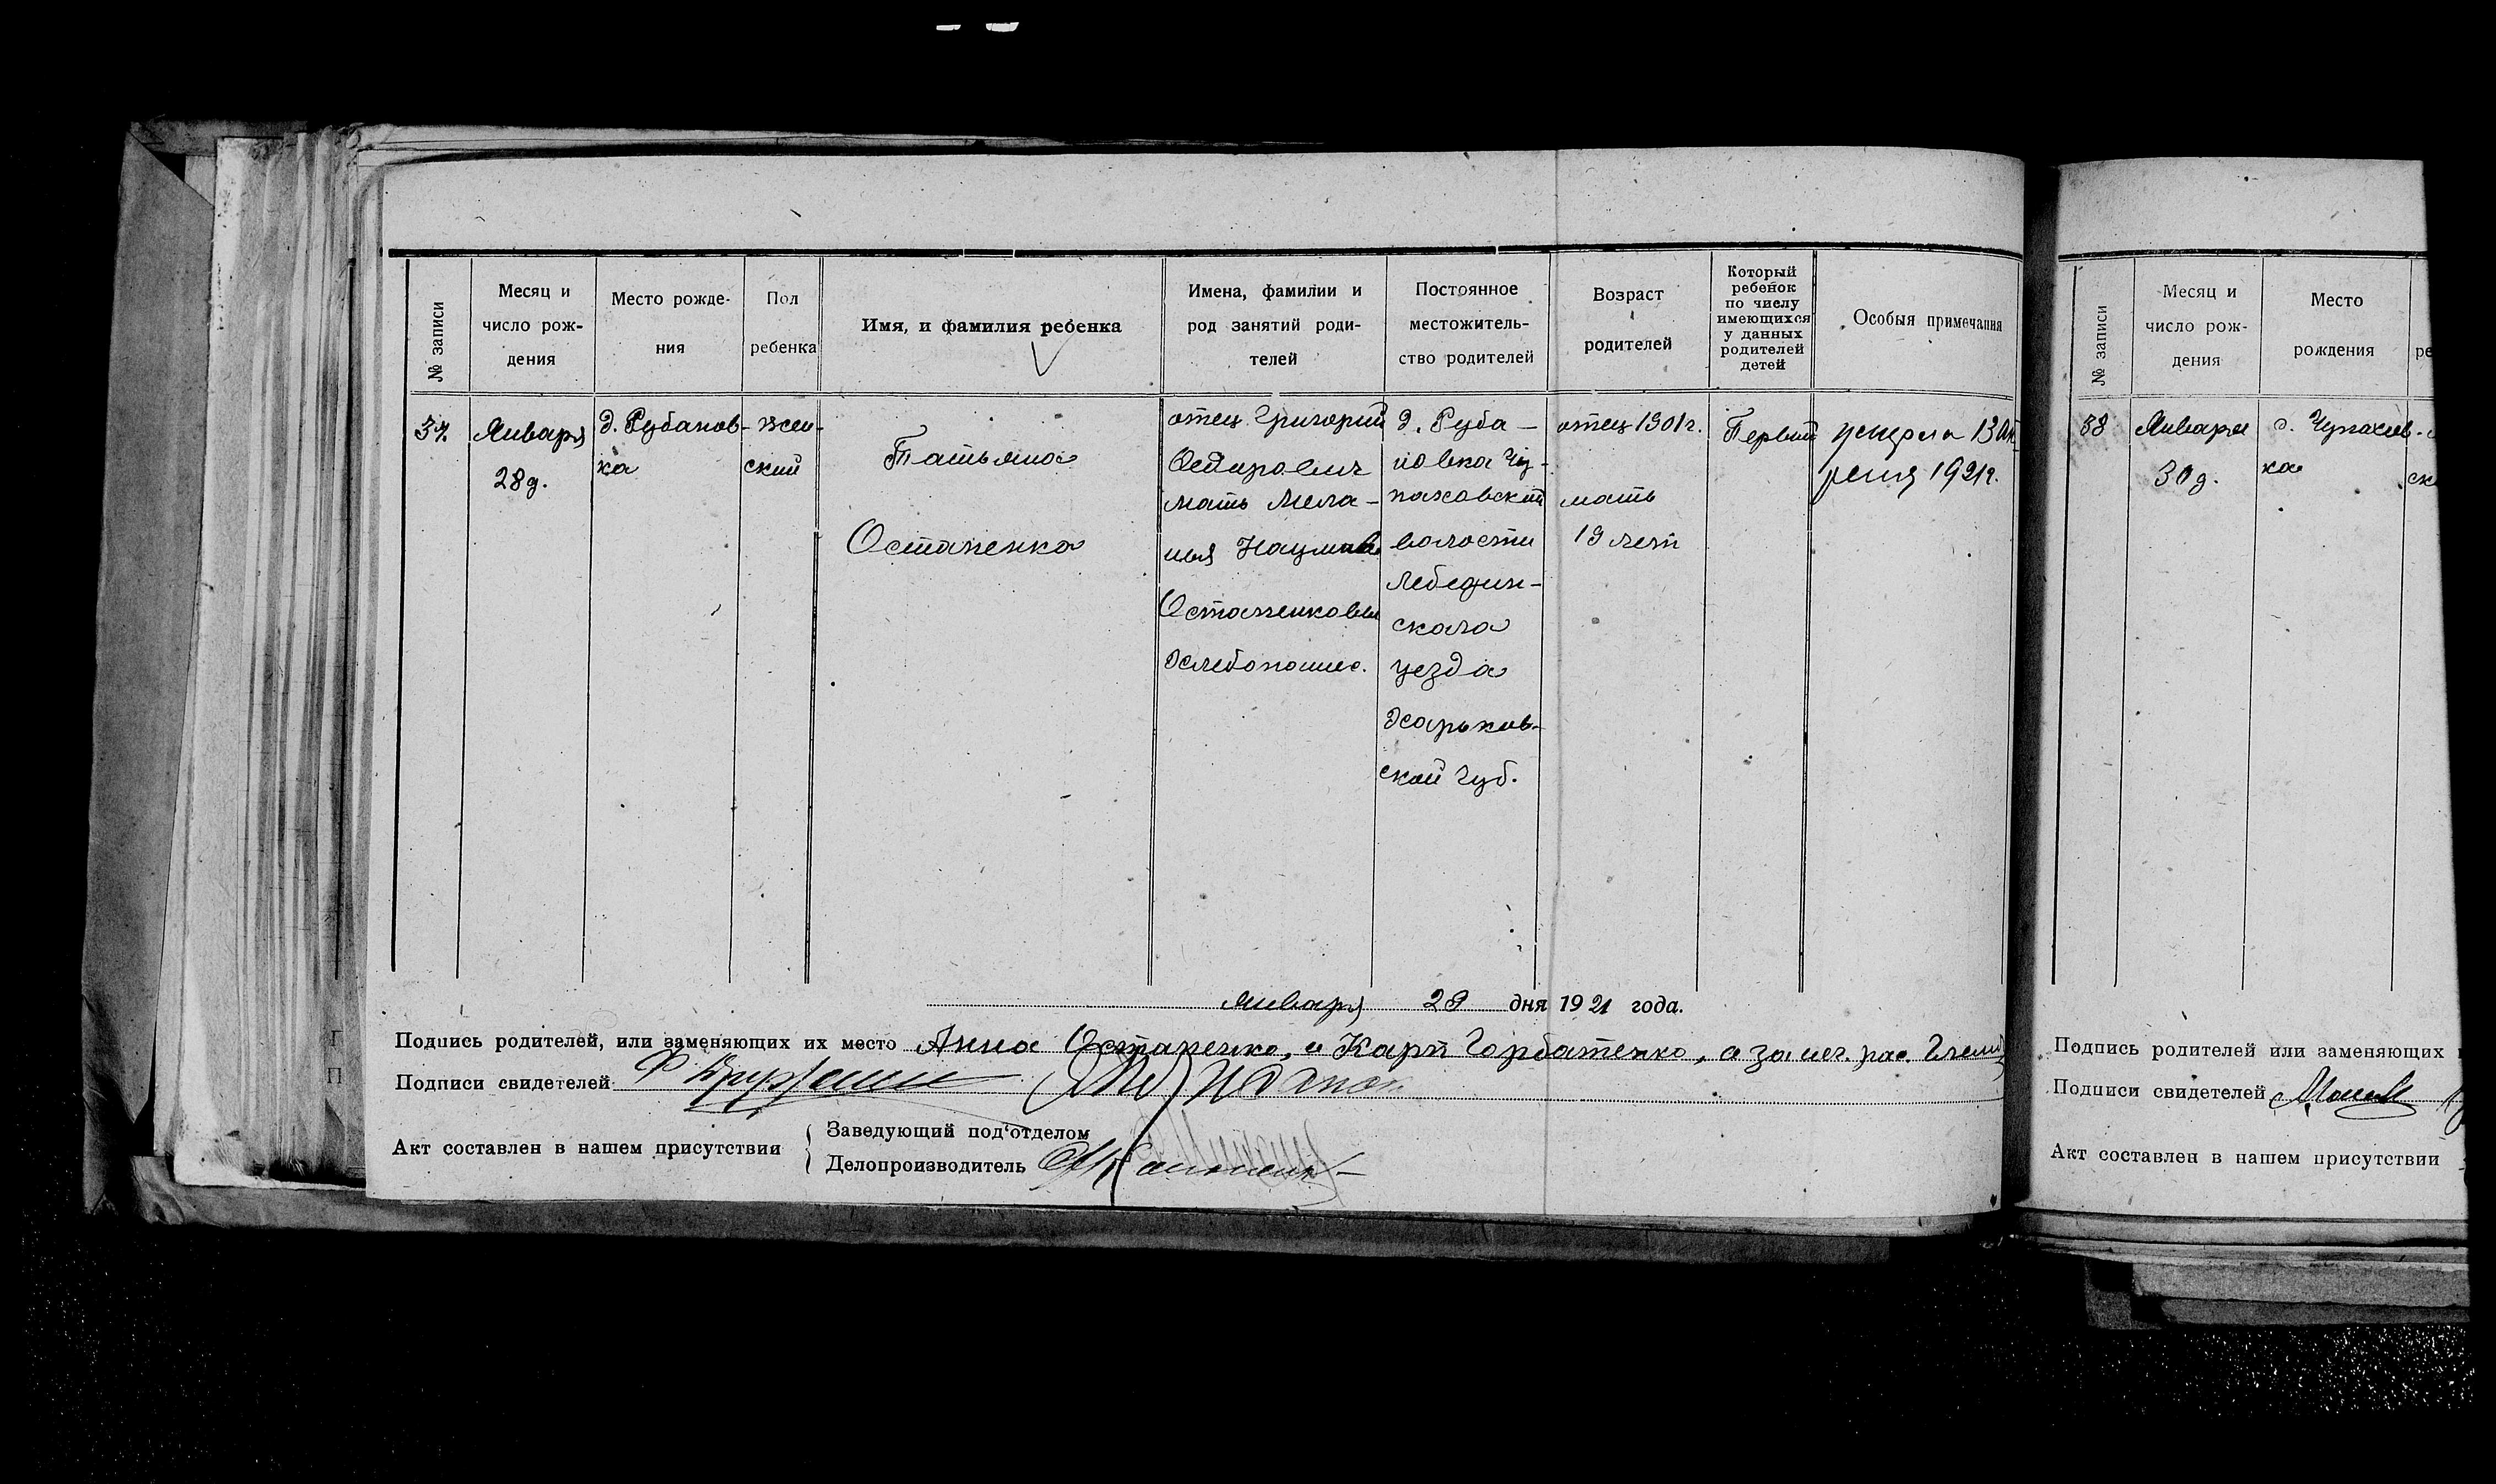 № записи
Месяц и
число рож-
дения
Место рожде-
ния
Пол
ребенка
Имя, и фамилия ребенка
Имена, фамилии и
род занятий роди-
телей
Постоянное
местожитель-
ство родителей
Возраст
родителей
Который
ребенок
по числу
имеющихся
у данных
родителей
детей
Особыя примечания
37.
Января
28д.
д. Рубанов-
ка
жен-
ский
Татьяна
Остапенко
отец Григорий
мать Мела-
ния Наумова
Остапенковы
хлебопашес.
д. Руба-
новка Чу-
паховской
волости
Лебедин-
скаго
уезда
Харьков-
ской губ.
отец 1901г.
мать
19 лет
Первый
умерла 13 Ап
реля 1921г.
Января 29 дня 1921 года.
Подпись родителей, или заменяющих их место Анна Остапенко, и Карп Горбатенко, а за нег. рас.
Подписи свидетелей
Акт составлен в нашем присутствии
Заведующий под'отделом
Делопроизводитель
№ записи
Месяц и
число рож-
дения
Место
рождения
ре
38
Января
30д.
д. Чупахов-
ка
ск
Подпись родителей или заменяющих
Подписи свидетелей
Акт составлен в нашем присутствии